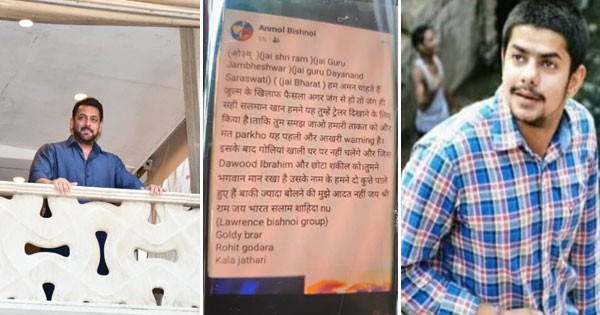 Anmol Bishnoi
(ओ३म् )(jai shri ram )(jai Guru
Jambheshwar )(jai guru Dayanand
Saraswati) ( (jai Bharat ) हम अमन चाहते हैं
जुल्म के खिलाफ फैसला अगर जंग से हो तो जंग ही
सही सलमान खान हमने यह तुम्हें ट्रेलर दिखाने के लिए
किया है।ताकि तुम समझ जाओ हमारी ताकत को और
मत parkho यह पहली और आखरी warning है।
इसके बाद गोलियां खाली घर पर नहीं चलेंगी और जिस
Dawood Ibrahim और छोटा शकील को।तुमने
भगवान मान रखा है उसके नाम के हमने दो कुत्ते पाले
हुए हैं बाकी ज्यादा बोलने की मुझे आदत नहीं जय श्री
राम जय भारत सलाम शाहिदा nu
(Lawrence bishnoi group)
Goldy brar
Rohit godara
Kala jathari